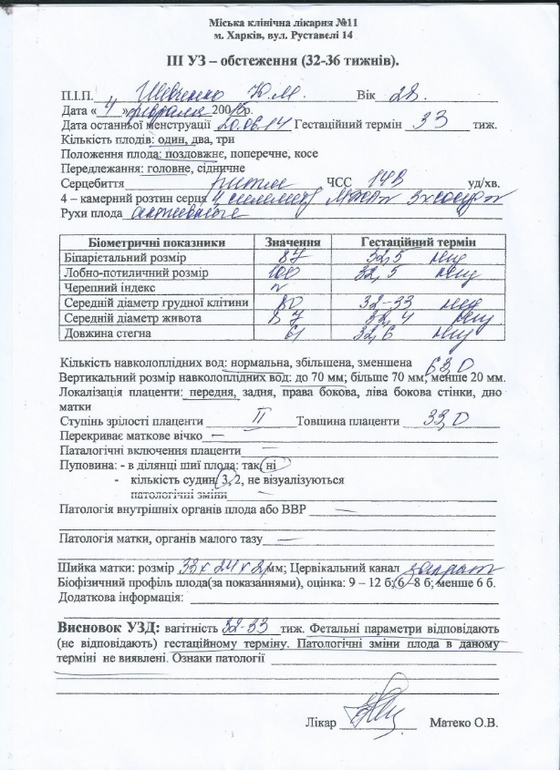 Міська клінічна лікарня №11
м. Харків, вул. Руставелі 14
ІІІ УЗ – обстеження (32-36 тижнів).
П.І.П. Шевченко Ю.М. Вік 28.
Дата « 4 » февраля 2015р.
Дата останньої менструації 20.06.14 Гестаційний термін 33 тиж.
Кількість плодів: один, два, три
Положення плода: поздовжнє, поперечне, косе
Передлежання: головне, сідничне
Серцебиття ритм ЧСС 143 уд/хв.
4 – камерний розтин серця
Рухи плода активные
Біометричні показники Значення Гестаційний термін
Біпарієтальний розмір 87 32,5 нед
Лобно-потиличний розмір 100 32,5 нед
Черепний індекс N
Середній діаметр грудної клітини 80 32-33 нед
Середній діаметр живота 87 32,4 нед
Довжина стегна 61 32,6 нед
Кількість навколоплідних вод: нормальна, збільшена, зменшена 63,0
Вертикальний розмір навколоплідних вод: до 70 мм; більше 70 мм; менше 20 мм.
Локалізація плаценти: передня, задня, права бокова, ліва бокова стінки, дно
матки
Ступінь зрілості плаценти ІІ Товщина плаценти 33,0
Перекриває маткове вічко —
Паталогічні включення плаценти —
Пуповина: - в ділянці шиї плода: так, ні
- кількість судин 3, 2, не візуалізуються
патологічні зміни
Патологія внутрішніх органів плода або ВВР —
Патологія матки, органів малого тазу —
Шийка матки: розмір 38 х 24 х мм; Цервікальний канал закрыт
Біофізичний профіль плода(за показаннями), оцінка: 9 – 12 б; 6 –8 б; менше 6 б.
Додаткова інформація:
Висновок УЗД: вагітність 32-33 тиж. Фетальні параметри відповідають
(не відповідають) гестаційному терміну. Патологічні зміни плода в даному
терміні не виявлені. Ознаки патології
Лікар Матеко О.В.